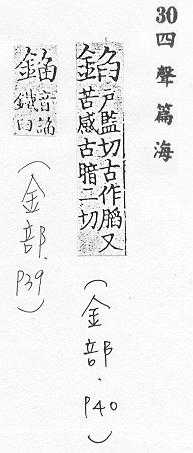 30 四聲篇海
錎 戶監切古作又
苦感古暗二切
(金部.P40)
音
(金部.P39)